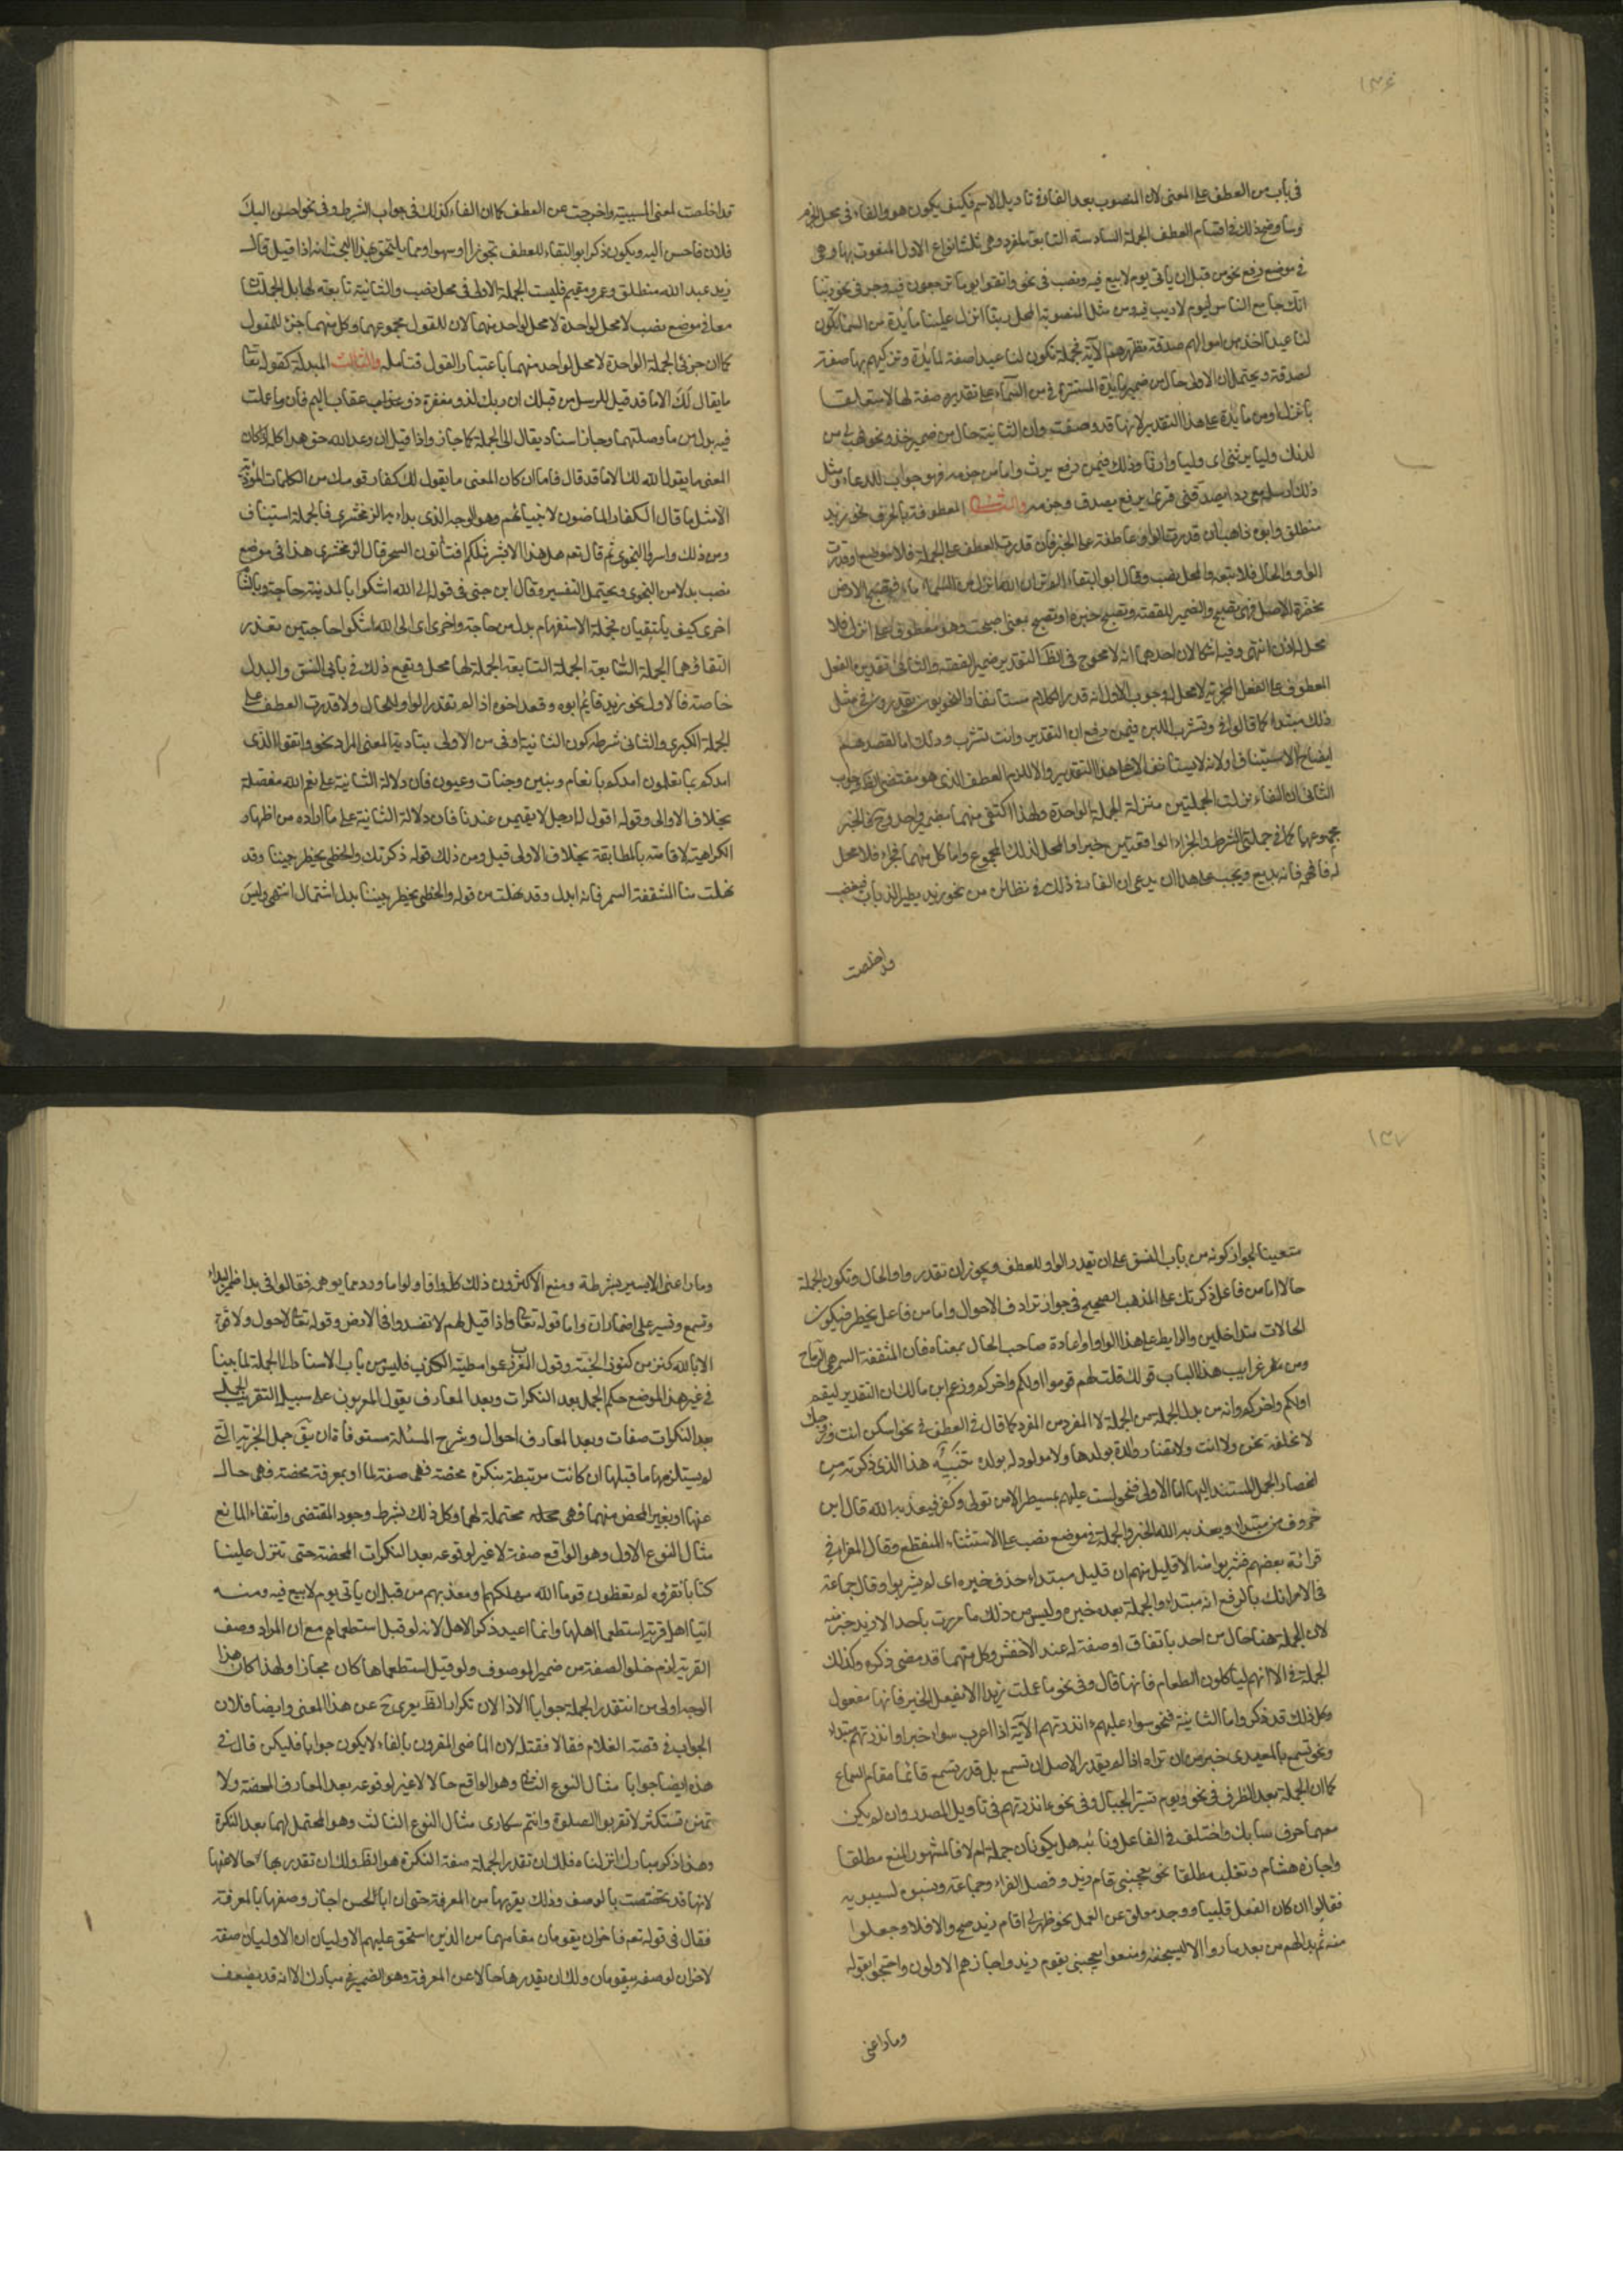 ١٣۶
في باب من العطف على المعنى لان المنصوب بعد الفاء في تاويل الاسم فكيف يكون هو والفاء في محل الجزم
وساوضح ذلك في اقسام العطف الجملة السادسة التابعة لمفرد وهي ثلثة انواع الاول المنعوت بها وهي
في موضع رفع نحو من قبل ان ياتي يوم لا بيع فيه ونصب في نحو واتقوا يوما ترجعون فيه وجر في نحو ربنا
انك جامع الناس ليوم لا ريب فيه ومن مثل المنصوبة المحل ربنا انزل علينا مايدة من السما تكون
لنا عيدا خذ من اموالهم صدقة تطهرهم الآية فجملة تكون لنا عيدا صفة لمايدة وتزكيهم بها صفة
لصدقة ويحتمل ان الاولى حال من ضمير مايدة المستتر في من السماء على تقديره صفة لها لا متعلقا
بانزل او من مايدة على هذا التقدير لانها قد وصفت وان الثانية حال من ضمير خذ ونحو فهب لي من
لدنك وليا يرثني اى وليا وارثا وذلك فيمن رفع يرث واما من جزمه فهو جواب للدعاء ومثل
ذلك ارسله معي ردا يصدقني قرئ برفع يصدق وجزمه والثاني المعطوفة بالحرف نحو زيد
منطلق وابوه ذاهب ان قدرت الواو عاطفة على الخبر فان قدرت العطف على الجملة فلا موضع او قدرت
الواو واو الحال فلا تبعية والمحل نصب وقال ابو البقاء الم تر ان الله انزل من السماء ماء فتصبح الارض
مخضرة الاصل فهي تصبح والضمير للقصة وتصبح خبره او تصبح بمعنى اصبحت وهو معطوف على انزل فلا
محل له اذن انتهى وفيه اشكالان احدهما انه لا محوج في الظ لتقدير ضمير القصة والثاني تقديره الفعل
المعطوف على الفعل المخبر به لا محل له وجوب الاول انه قدر الكلام مستانفا والنحويون يقدرون في مثل
ذلك مبتدا كما قالوا في وتشرب اللبن فيمن رفع ان التقدير وانت تشرب وذلك اما لقصدهم
ايضاح الاستيناف او لانه لا يستانف الا على هذا التقدير والا للزم العطف الذى هو مقتضى الظ وجواب
الثاني ان الفاء نزلت الجملتين منزلة الجملة الواحدة ولهذا اكتفى منهما بضمير واحد وح فالخبر
مجموعهما كما في جملتي الشرط والجزاء الواقعتين خبرا والمحل لذلك المجموع واما كل منهما فجزء فلا محل
له فافهمه فانه بديع ويجب على هذا ان يدعى ان الفاء في ذلك وفي نظائره من نحو زيد يطير الذباب فيغضب
قد اخلصت
قد اخلصت لمعنى السببية واخرجت عن العطف كما ان الفاء كذلك في جواب الشرط وفي نحو احسن اليك
فلان فاحسن اليه ويكون ذكر ابو البقاء للعطف تجوزا او سهوا ومما يلتحق بهذا البحث انه اذا قيل قال
زيد عبد الله منطلق وعمرو مقيم فليست الجملة الاولى في محل نصب والثانية تابعة لها بل الجملتان
معا في موضع نصب لا محل لواحدة لا محل لواحد منهما لان المقول مجموعهما وكل منهما جزء للمقول
كما ان جزئي الجملة الواحدة لا محل لواحد منهما باعتبار القول فتامله والثالث المبدلة كقوله تعا
ما يقال لك الا ما قد قيل للرسل من قبلك ان ربك لذو مغفرة وذو عقاب اليم فان وما عملت
فيه بدل من ما وصلتهما وجاز اسناد يقال الى الجملة كما جاز واذا قيل ان وعد الله حق هذا كله اذا كان
المعنى ما يقول الله لك الا ما قد قال فاما ان كان المعنى ما يقول لك كفار قومك من الكلمات المؤذية
الا مثل ما قال الكفار الماضون لانبيائهم وهو الوجه الذى بداء به الزمخشرى فالجملة استيناف
ومن ذلك واسروا النجوى ثم قال تعم هل هذا الا بشر مثلكم افتأتون السحر قال الزمخشرى هذا في موضع
نصب بدلا من النجوى ويحتمل التفسير وقال ابن جني في قوله الى الله اشكوا بالمدينة حاجة وبالشام
اخرى كيف يلتقيان جملة الاستفهام بدل من حاجة واخرى اى الى الله اشكوا حاجتين تعذر
التقاؤهما الجملة السابعة الجملة التابعة لجملة لها محل ويقع ذلك في بابي النسق والبدل
خاصة فالاول نحو زيد قايم ابوه وقعد اخوه اذا لم تقدر الواو للحال ولا قدرت العطف على
الجملة الكبرى والثاني شرطه كون الثانية اوفى من الاولى بتادية المعنى المراد نحو واتقوا الذى
امدكم بما تعلمون امدكم بانعام وبنين وجنات وعيون فان دلالة الثانية على نعم الله مفصلة
بخلاف الاولى وقوله اقول له ارحل لا تقيمن عندنا فان دلالة الثانية على ما اراده من اظهار
الكراهية لاقامته بالمطابقة بخلاف الاولى قيل ومن ذلك قوله ذكرتك والخطى يخطر بيننا وقد
نهلت منا المثقفة السمر فانه ابدل وقد نهلت من قوله والخطى يخطر بيننا بدل اشتمال انتهى وليس
١٣٧
متعينا لجواز كونه من باب النسق على ان تقدر الواو للعطف ويجوز ان تقدر واو الحال وتكون الجملة
حالا اما من فاعل ذكرتك على المذهب الصحيح في جواز ترادف الاحوال واما من فاعل يخطر فيكون
الحالات متداخلين والرابط على هذا الواو او اعادة صاحب الحال بمعناه فان المثقفة السمر هي الرماح
ومن غرايب هذا الباب قولك قلت لهم قوموا اولكم واخركم وزعم ابن مالك ان التقدير ليقم
اولكم واخركم وانه من بدل الجملة من الجملة لا المفرد من المفرد كما قال في العطف في نحو اسكن انت وزوجك
لا نخلفه نحن ولا انت ولا تضار والدة بولدها ولا مولود له بولده تنبيه هذا الذى ذكرته من
انحصار الجمل المسند اليها اما الاولى فنحو لست عليهم بمسيطر الا من تولى وكفر فيعذبه الله قال ابن
خروف من مبتداء ويعذبه الله الخبر والجملة في موضع نصب على الاستثناء المنقطع وقال الفراء في
قرائة بعضهم فشربوا منه الا قليل منهم ان قليل مبتداء حذف خبره اى لم يشربوا وقال جماعة
في الا امراتك بالرفع انه مبتداء والجملة بعده خبره وليس من ذلك ما مررت باحد الا زيد خير منه
لان الجملة هنا حال من احد باتفاق او صفة له عند الاخفش وكل منهما قد مضى ذكره وكذلك
الجملة في الا انهم لياكلون الطعام فانها قال وفي نحو ما علمت زيدا الا يفعل الخير فانها مفعول
وكل ذلك قد ذكر واما الثانية فنحو سواء عليهم ءانذرتهم الآية اذا اعرب سواء خبرا وانذرتهم مبتداء
ونحو تسمع بالمعيدى خير من ان تراه اذا لم يقدر الاصل ان تسمع بل قدر تسمع قائما مقام السماع
كما ان الجملة بعد الظرف في نحو ويوم نسير الجبال وفي نحو ءانذرتهم في تاويل المصدر وان لم يكن
معهما حرف سابك واختلف في الفاعل ونائبه هل يكونان جملة ام لا فالمشهور المنع مطلقا
واجازه هشام وثعلب مطلقا نحو يعجبني قام زيد وفصل الفراء وجماعة ونسبوه لسيبويه
فقالوا ان كان الفعل قلبيا ووجد معلق عن العمل نحو ظهر لي اقام زيد صح والا فلا وجعلوا
منه ثم بدا لهم من بعد ما راوا الايات ليسجننه ومنعوا يعجبني يقوم زيد واجازهم الاولون واحتجوا بقوله
وما راعني
وما راعني الا يسير بشرطة ومنع الاكثرون ذلك كله واولوا ما ورد مما يوهمه فقالوا في بدا ضمير البداء
وتسمع وتسير على اضمار ان واما قوله تعا واذا قيل لهم لا تفسدوا في الارض وقوله تعا لا حول ولا قوة
الا بالله كنز من كنوز الجنة وقول العرب زعموا مطية الكذب فليس من باب الاسناد الى الجملة لما بينا
في غير هذا الموضع حكم الجمل بعد النكرات وبعد المعارف يقول المعربون على سبيل التقريب الجمل
بعد النكرات صفات وبعد المعارف احوال وشرح المسئلة مستوفاة ان يقَ جمل الخبرية التي
لم يستلزمها ما قبلها ان كانت مرتبطة بنكرة محضة فهي صفة لها او بمعرفة محضة فهي حال
عنها او بغير المحض منهما فهي محتملة لهما وكل ذلك بشرط وجود المقتضى وانتفاء المانع
مثال النوع الاول وهو الواقع صفة لا غير لوقوعه بعد النكرات المحضة حتى تنزل علينا
كتابا نقرؤه لم تعظون قوما الله مهلكهم او معذبهم من قبل ان ياتى يوم لا بيع فيه ومنه
اتيا اهل قرية استطعما اهلها وانما اعيد ذكر الاهل لانه لو قيل استطعماهم مع ان المراد وصف
القرية لزم خلو الصفة من ضمير الموصوف ولو قيل استطعماها كان مجازا ولهذا كان هذا
الوجه اولى من ان تقدر الجملة جوابا لاذا لان تكرار الظ يعرى ح عن هذا المعنى وايضا فلان
الجواب في قصة الغلام فقالا فقتله لان الماضي المقرون بالفاء لا يكون جوابا فليكن قال في
هذه ايضا جوابا مثال النوع الثاني وهو الواقع حالا لا غير لوقوعه بعد المعارف المحضة ولا
تمنن تستكثر لا تقربوا الصلوة وانتم سكارى مثال النوع الثالث وهو المحتمل لهما بعد النكرة
وهذا ذكر مبارك انزلناه فلك ان تقدر الجملة صفة النكرة هو الظ ولك ان تقدرها حالا عنها
لانها قد تخصصت بالوصف وذلك يقربها من المعرفة حتى ان ابا الحسن اجاز وصفها بالمعرفة
فقال في قوله تعم فاخران يقومان مقامهما من الذين استحق عليهم الاوليان ان الاوليان صفة
لاخران لوصفه بيقومان ولك ان تقدرها حالا عن المعرفة وهو الضمير في مبارك الا انه قد يضعف